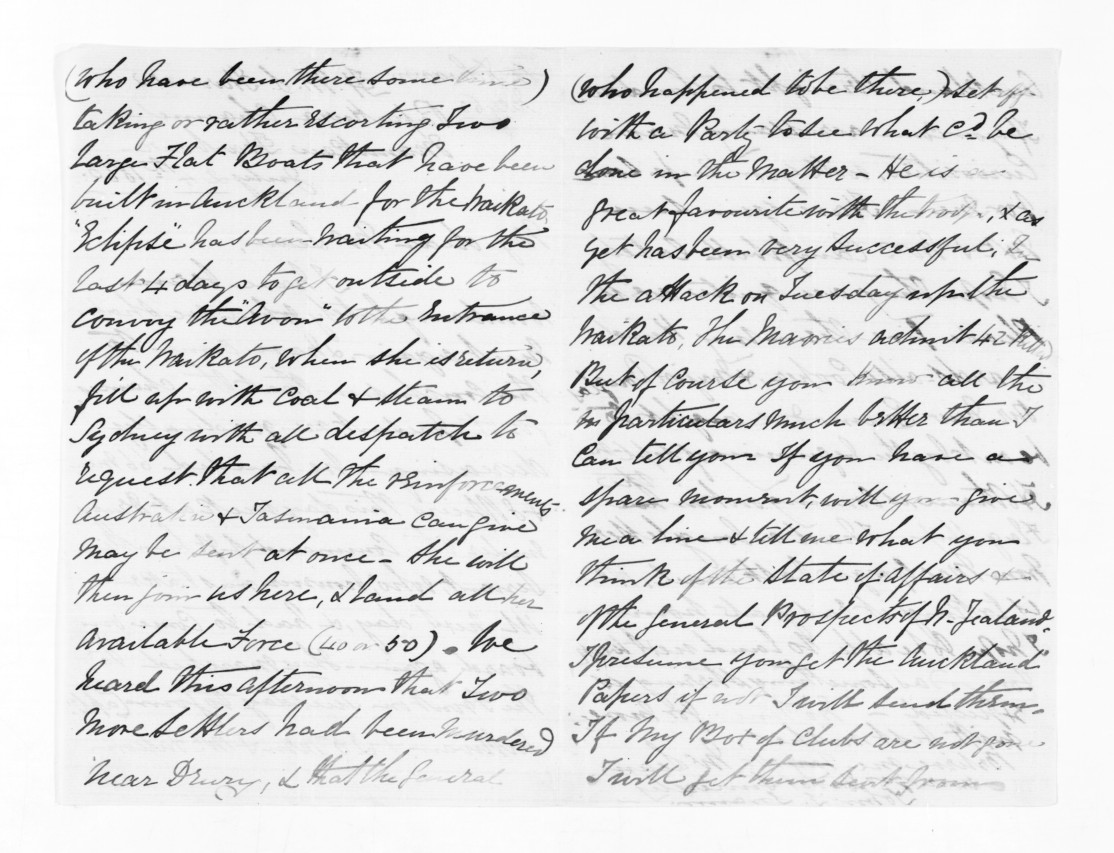 (who have been there some time)
taking or rather escorting Two
large Flat Boats that have been
built in Auckland for the Waikato.
"Eclipse" has been waiting for the
last 4 days to get outside to
convoy the "Avon" to the Entrance
of the Waikato, when she is return,
fill up with Coal & steam to
Sydney with all despatch to
request that all the reinforcements
Australia & Tasmania can give
may be sent at once - She will
then join us here, & land all her
available Force (40 or 50). We
heard this afternoon that Two
more Settlers had been murdered
near Drury, & that the General
(who happened to be there,) set off
with a Party to see what cd. be
done in the Matter - He is a
great favourite with the troops, & as
yet has been very successful, in
the attack on Tuesday up the
Waikato, The Maories admit 42
But of course you know all the
particulars much better than I
can tell you - If you have a
spare moment, will you give
me a line & tell me what you
think of the State of affairs &
of the General Prospects of N. Zealand.
I presume you get the Auckland
Papers if not I will send them -
If my Box of Clubs are not gone
I will get them sent from